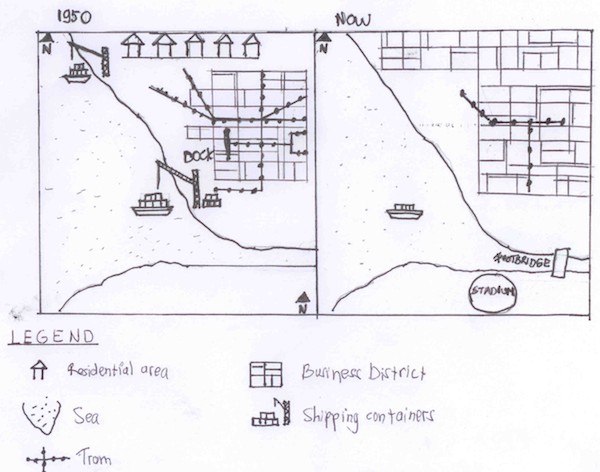 1950
NOW
N
N
DOCK
FOOTBRIDGE
STADIUM
N
LEGEND
Residential area
Business District
Sea
Shipping containers
Tram